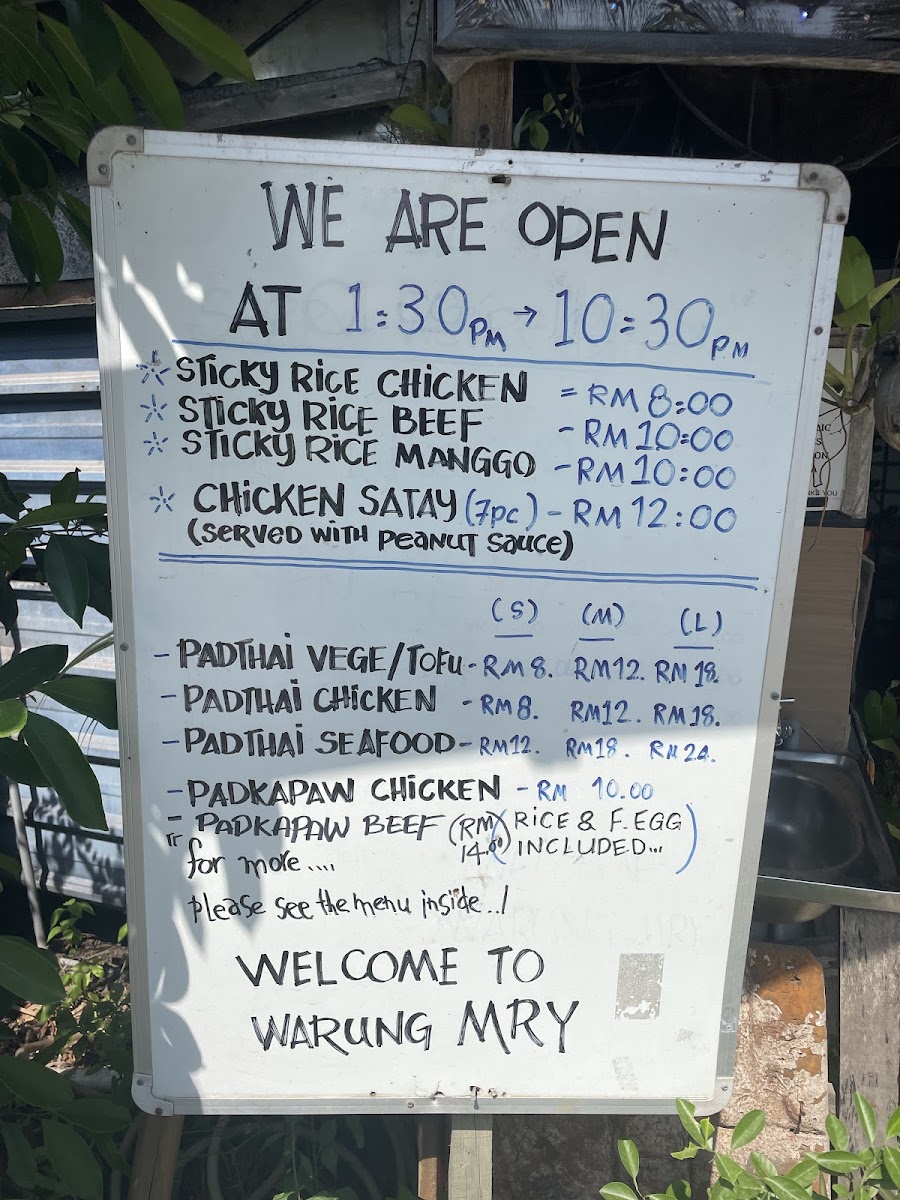 WE ARE OPEN
AT 1:30PM → 10:30PM
STICKY RICE CHICKEN = RM 8:00
STICKY RICE BEEF - RM 10:00
STICKY RICE MANGGO - RM 10:00
CHICKEN SATAY (7pc) - RM 12:00
(SERVED WITH PEANUT SAUCE)
(S) (M) (L)
- PADTHAI VEGE/TOFU - RM8. RM12. RM 18.
- PADTHAI CHICKEN - RM8. RM12. RM18.
- PADTHAI SEAFOOD - RM12. RM18. RM24.
- PADKAPAW CHICKEN - RM 10.00
- PADKAPAW BEEF (RM 14.00) (RICE & F.EGG
INCLUDED...)
for more....
please see the menu inside../
WELCOME TO
WARUNG MRY